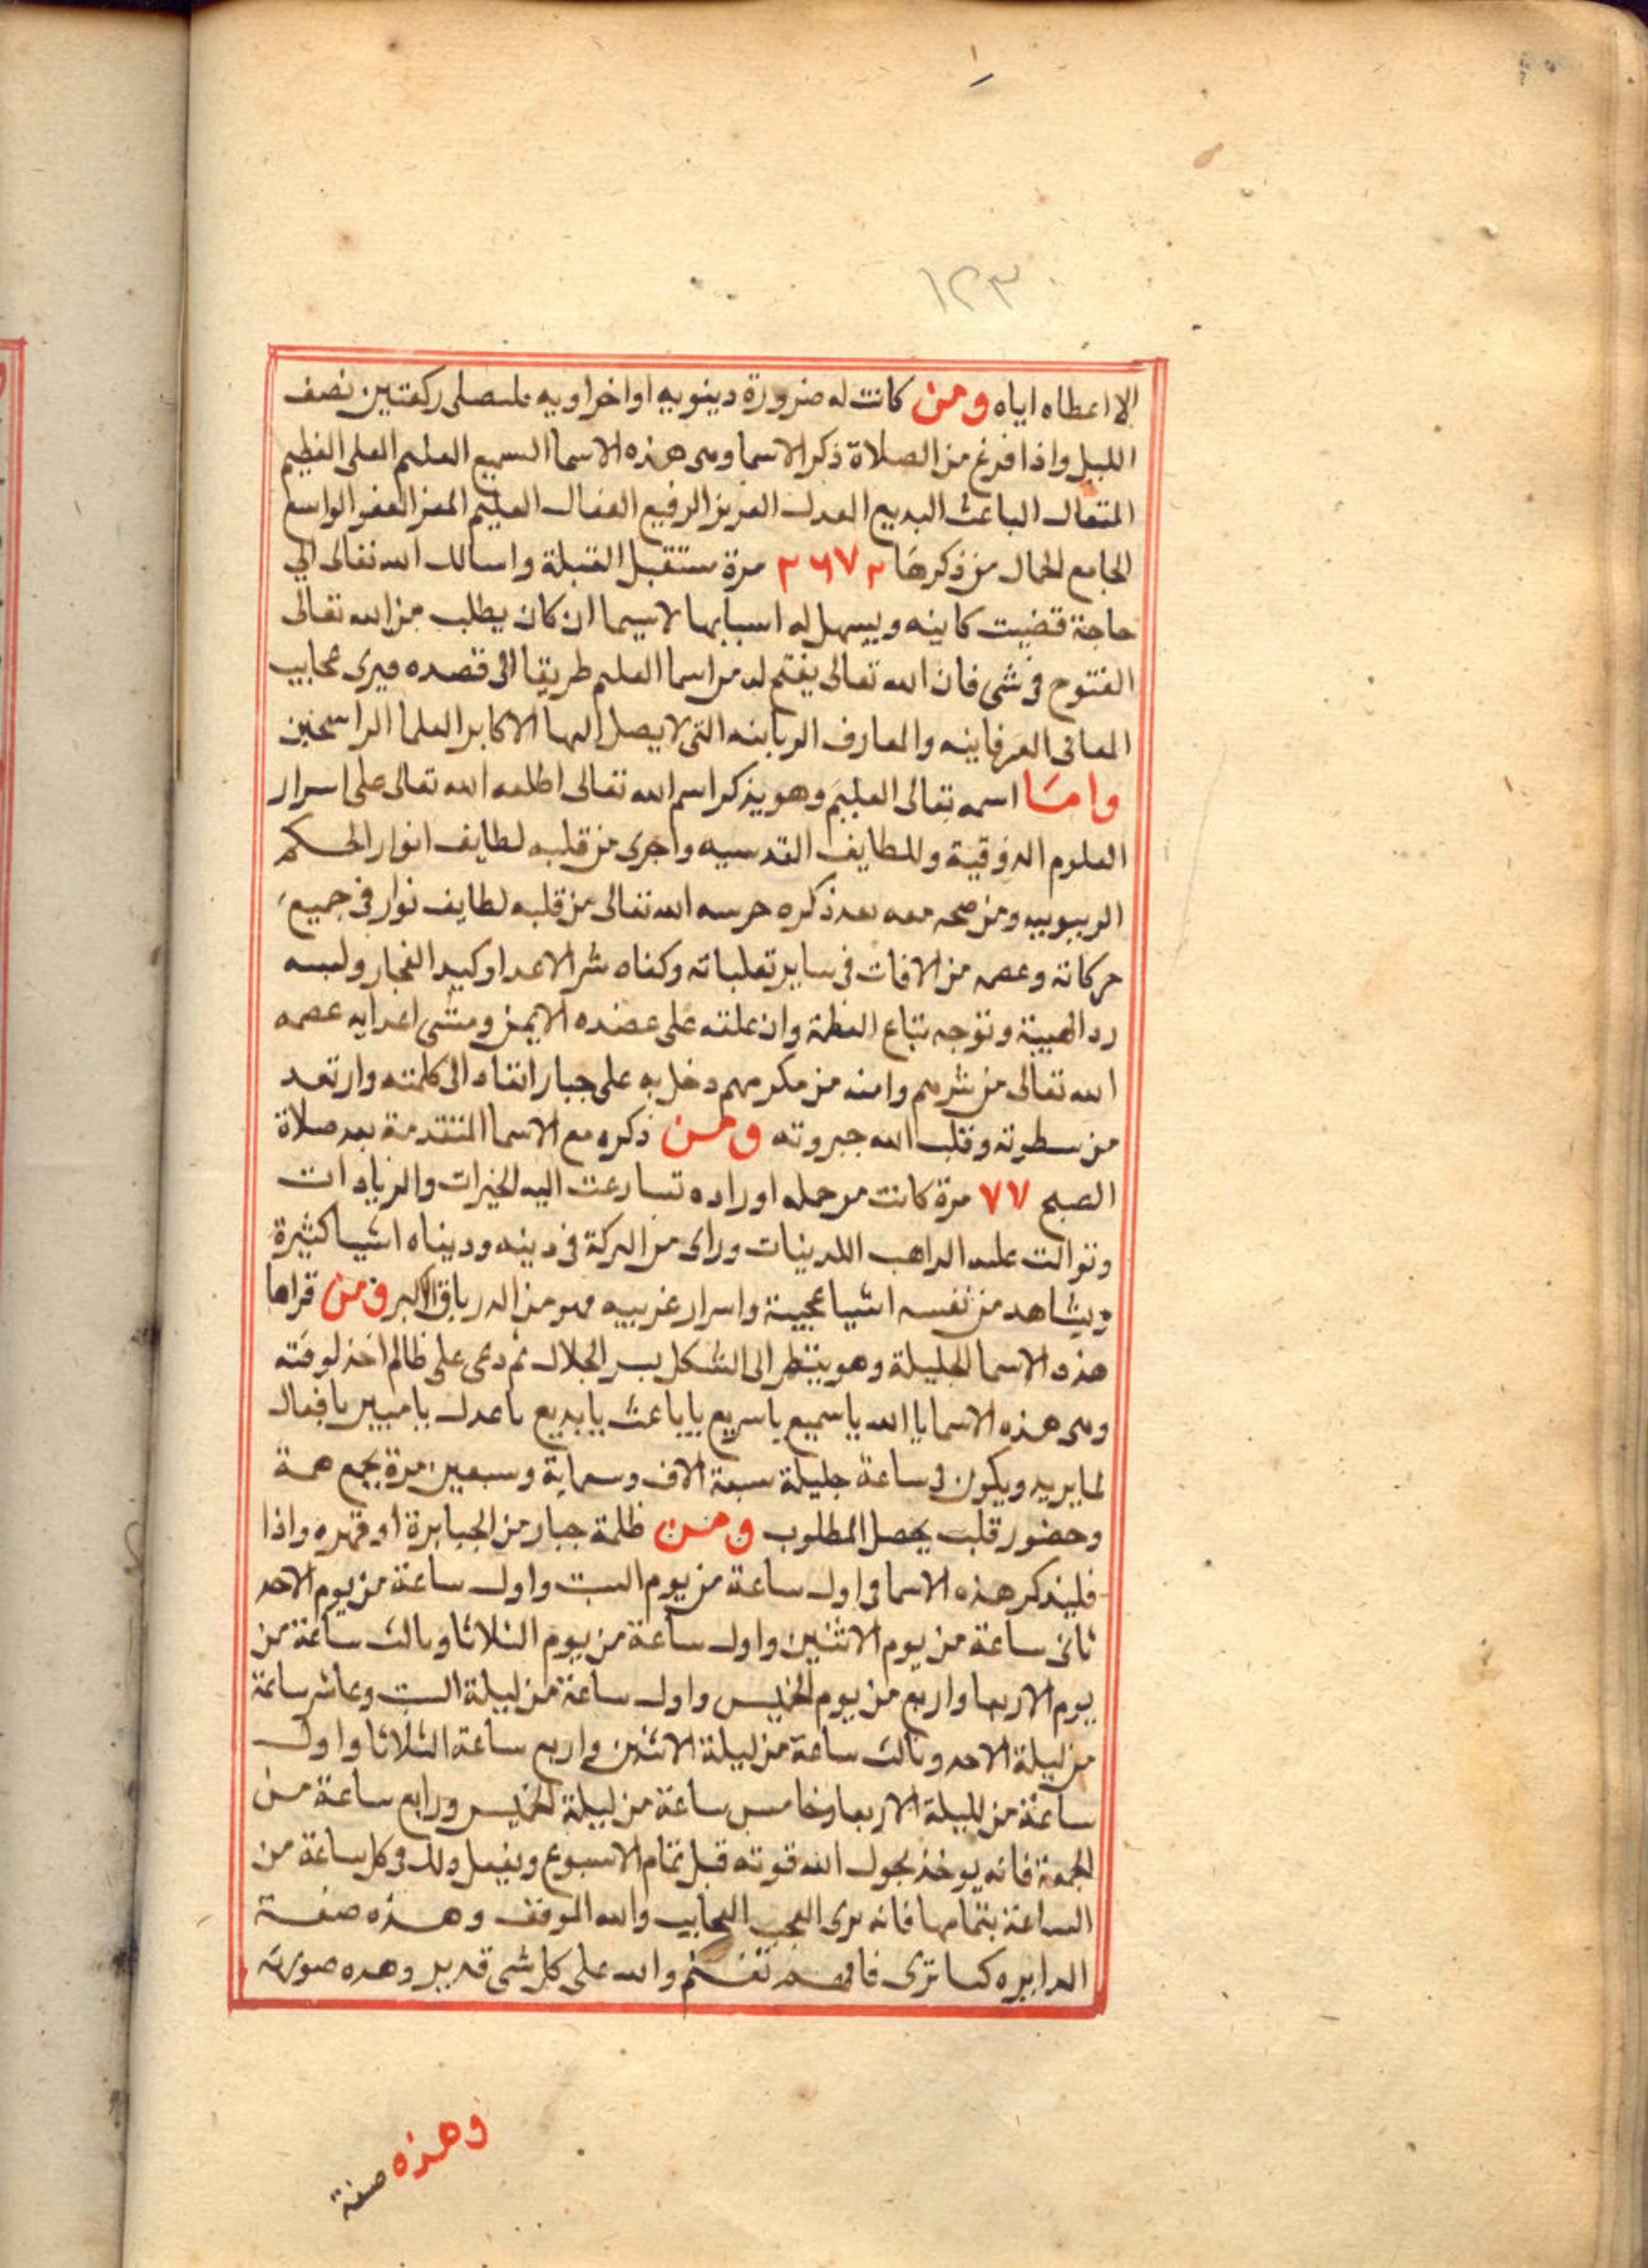 ١٢٣
الا اعطاه اياه ومن كانت له ضرورة دينويه او اخراويه فليصلى ركعتين نصف
الليل واذا فرغ من الصلاة ذكر الاسما وهى هذه الاسما السميع العليم العلى العظيم
المتعال الباعث البديع العدل العزيز الرفيع الفعال العليم المعز العفو الواسع
الجامع الجمال من ذكرها ٢٦٧٢ مرة مستقبل القبلة واسالك الله تعالى اي
حاجة قضيت كاينه ويسهل له اسبابها لاسيما ان كان يطلب من الله تعالى
الفتوح في شى فان الله تعالى يفتح له من اسما العليم طريقا الى قصده فيرى عجايب
المعانى العرفاينه والمعارف الربابنه التى لا يصل اليها الا كابر العلما الراسخين
واما اسمه تعالى العليم وهو يذكر اسم الله تعالى اطلعه الله تعالى على اسرار
العلوم الذوقية وللطايف القدسيه واجرى من قلبه لطايف انوار الحكم
الربوبيه ومن صحه معه بعد ذكره حرسه الله تعالى من قلبه لطايف نوار في جميع
حركاته وعصمه من الافات فى ساير تعلباته وكفاه شر الاعدا وكيد الفجار ولبسه
رد الهيبة وتوجه بتاع العظمة وان علقه على عضده الايمن ومشى اعدايه عصمه
الله تعالى من شرهم وامنه من مكرهم دخل به على جبار انقاه الى كلمته وارتعد
من سطوته وقلب الله جبروته ومن ذكره مع الاسما المتقدمة بعد صلاة
الصبح ٧٧ مرة كانت من جمله اوراده تسارعت اليه الخيرات والزيادات
وتوالت عليه الراهب اللدينات وراى من البركة فى دينه وديناه اشيا كثيرة
ويشاهد من نفسه اشيا عجيبة واسرار غريبيه فهو من الدرياق الاكبر ومن قراها
هذه الاسما الجليلة وهو ينظر الى الشكل بسر الجلال ثم دعى على ظالم اخذ لوقته
وهى هذه الاسما يا الله يا سميع يا سريع يا باعث يا بديع يا عدل يا مبين يا فعال
لما يريد ويكون فى ساعة جليلة سبعة الاف وسماية وسبعين مرة بجمع همة
وحضور قلب يحصل المطلوب ومن ظلمة جبار من الجبابرة او قهره واذا
فليذكر هذه الاسما فى اول ساعة من يوم السبت واول ساعة من يوم الاحد
ثانى ساعة من يوم الاثنين واول ساعة من يوم الثلاثا وثالث ساعة من
يوم الاربعا واربع من يوم الخميس واول ساعة من ليلة السبت وعاشر ساعة
من ليلة الاحد وثالث ساعة من ليلة الاثنين واربع ساعة الثلاثا واول
ساعة من لليلة الاربعا وخامس ساعة من ليلة الخميس ورابع ساعة من
الجمعة فانه يوخذ بحول الله قوته قبل تمام الاسبوع ويفعل ذلك فى كل ساعة من
الساعة بتمامها فانه يرى العجب العجايب والله الموفق وهذه صفة
الدايره كما ترى فافهم تغنم والله على كل شى قدير وهده صورته
وهذه صفة